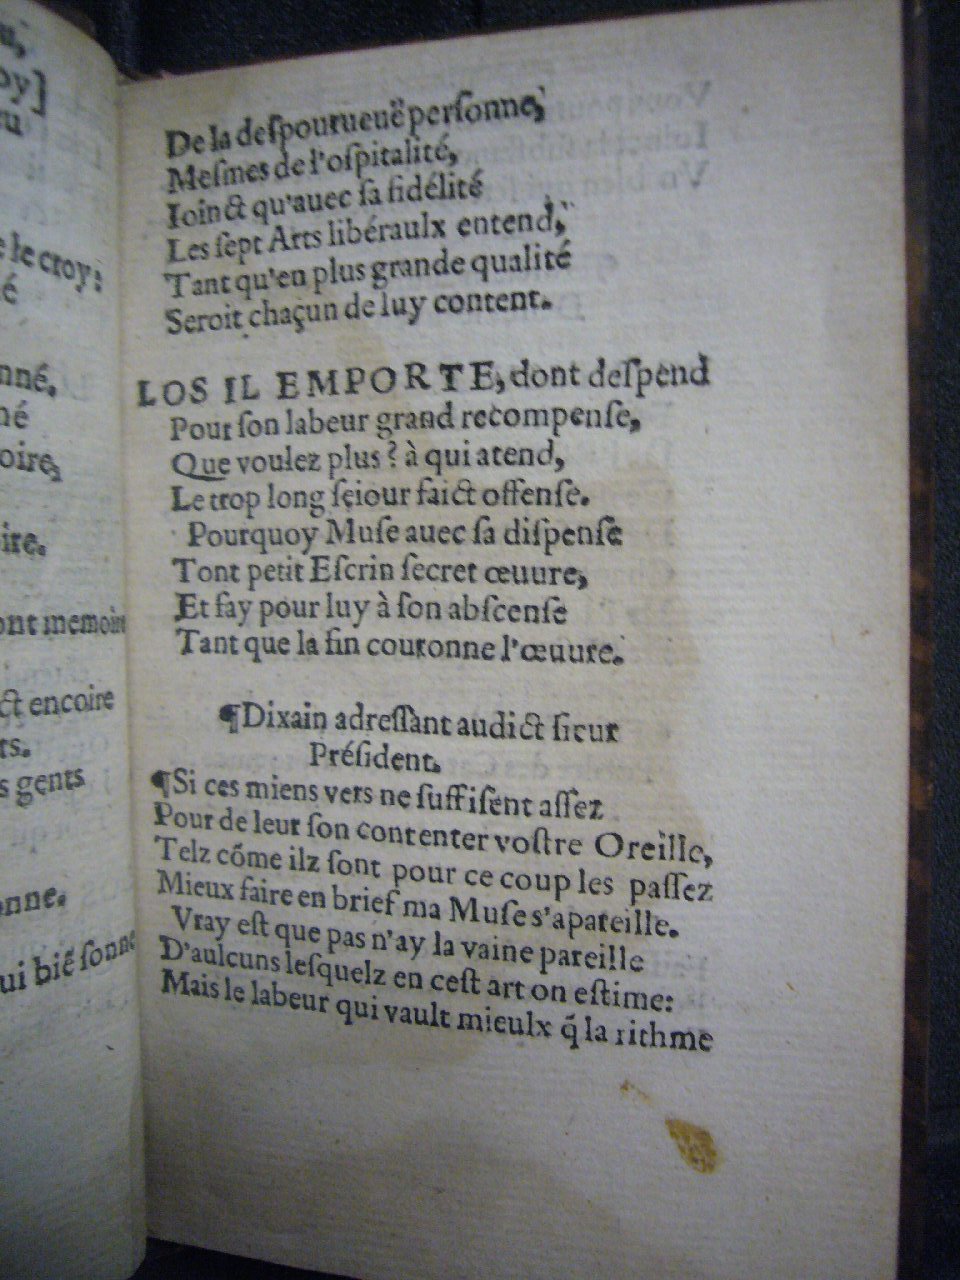 u,
oy]
u
e le croy:
é
nné,
né
oire,
oire.
ont memoire
ct encoire
ts.
s gents
onne.
ui biē sonne
De la despourueuë personne,
Mesmes de l'ospitalité,
Ioinct qu'auec sa fidélité
Les sept Arts libéraulx entend,
Tant qu'en plus grande qualité
Seroit chaçun de luy content.
LOS IL EMPORTE, dont despend
Pour son labeur grand recompense,
Que voulez plus? à qui atend,
Le trop long seiour faict offense.
Pourquoy Muse auec sa dispense
Tont petit Escrin secret œuure,
Et fay pour luy à son abscense
Tant que la fin couronne l'œuure.
¶Dixain adressant audict sieur
Président.
¶Si ces miens vers ne suffisent assez
Pour de leur son contenter vostre Oreille,
Telz cõme ilz sont pour ce coup les passez
Mieux faire en brief ma Muse s'apareille.
Vray est que pas n'ay la vaine pareille
D'aulcuns lesquelz en cest art on estime:
Mais le labeur qui vault mieulx q̃ la rithme